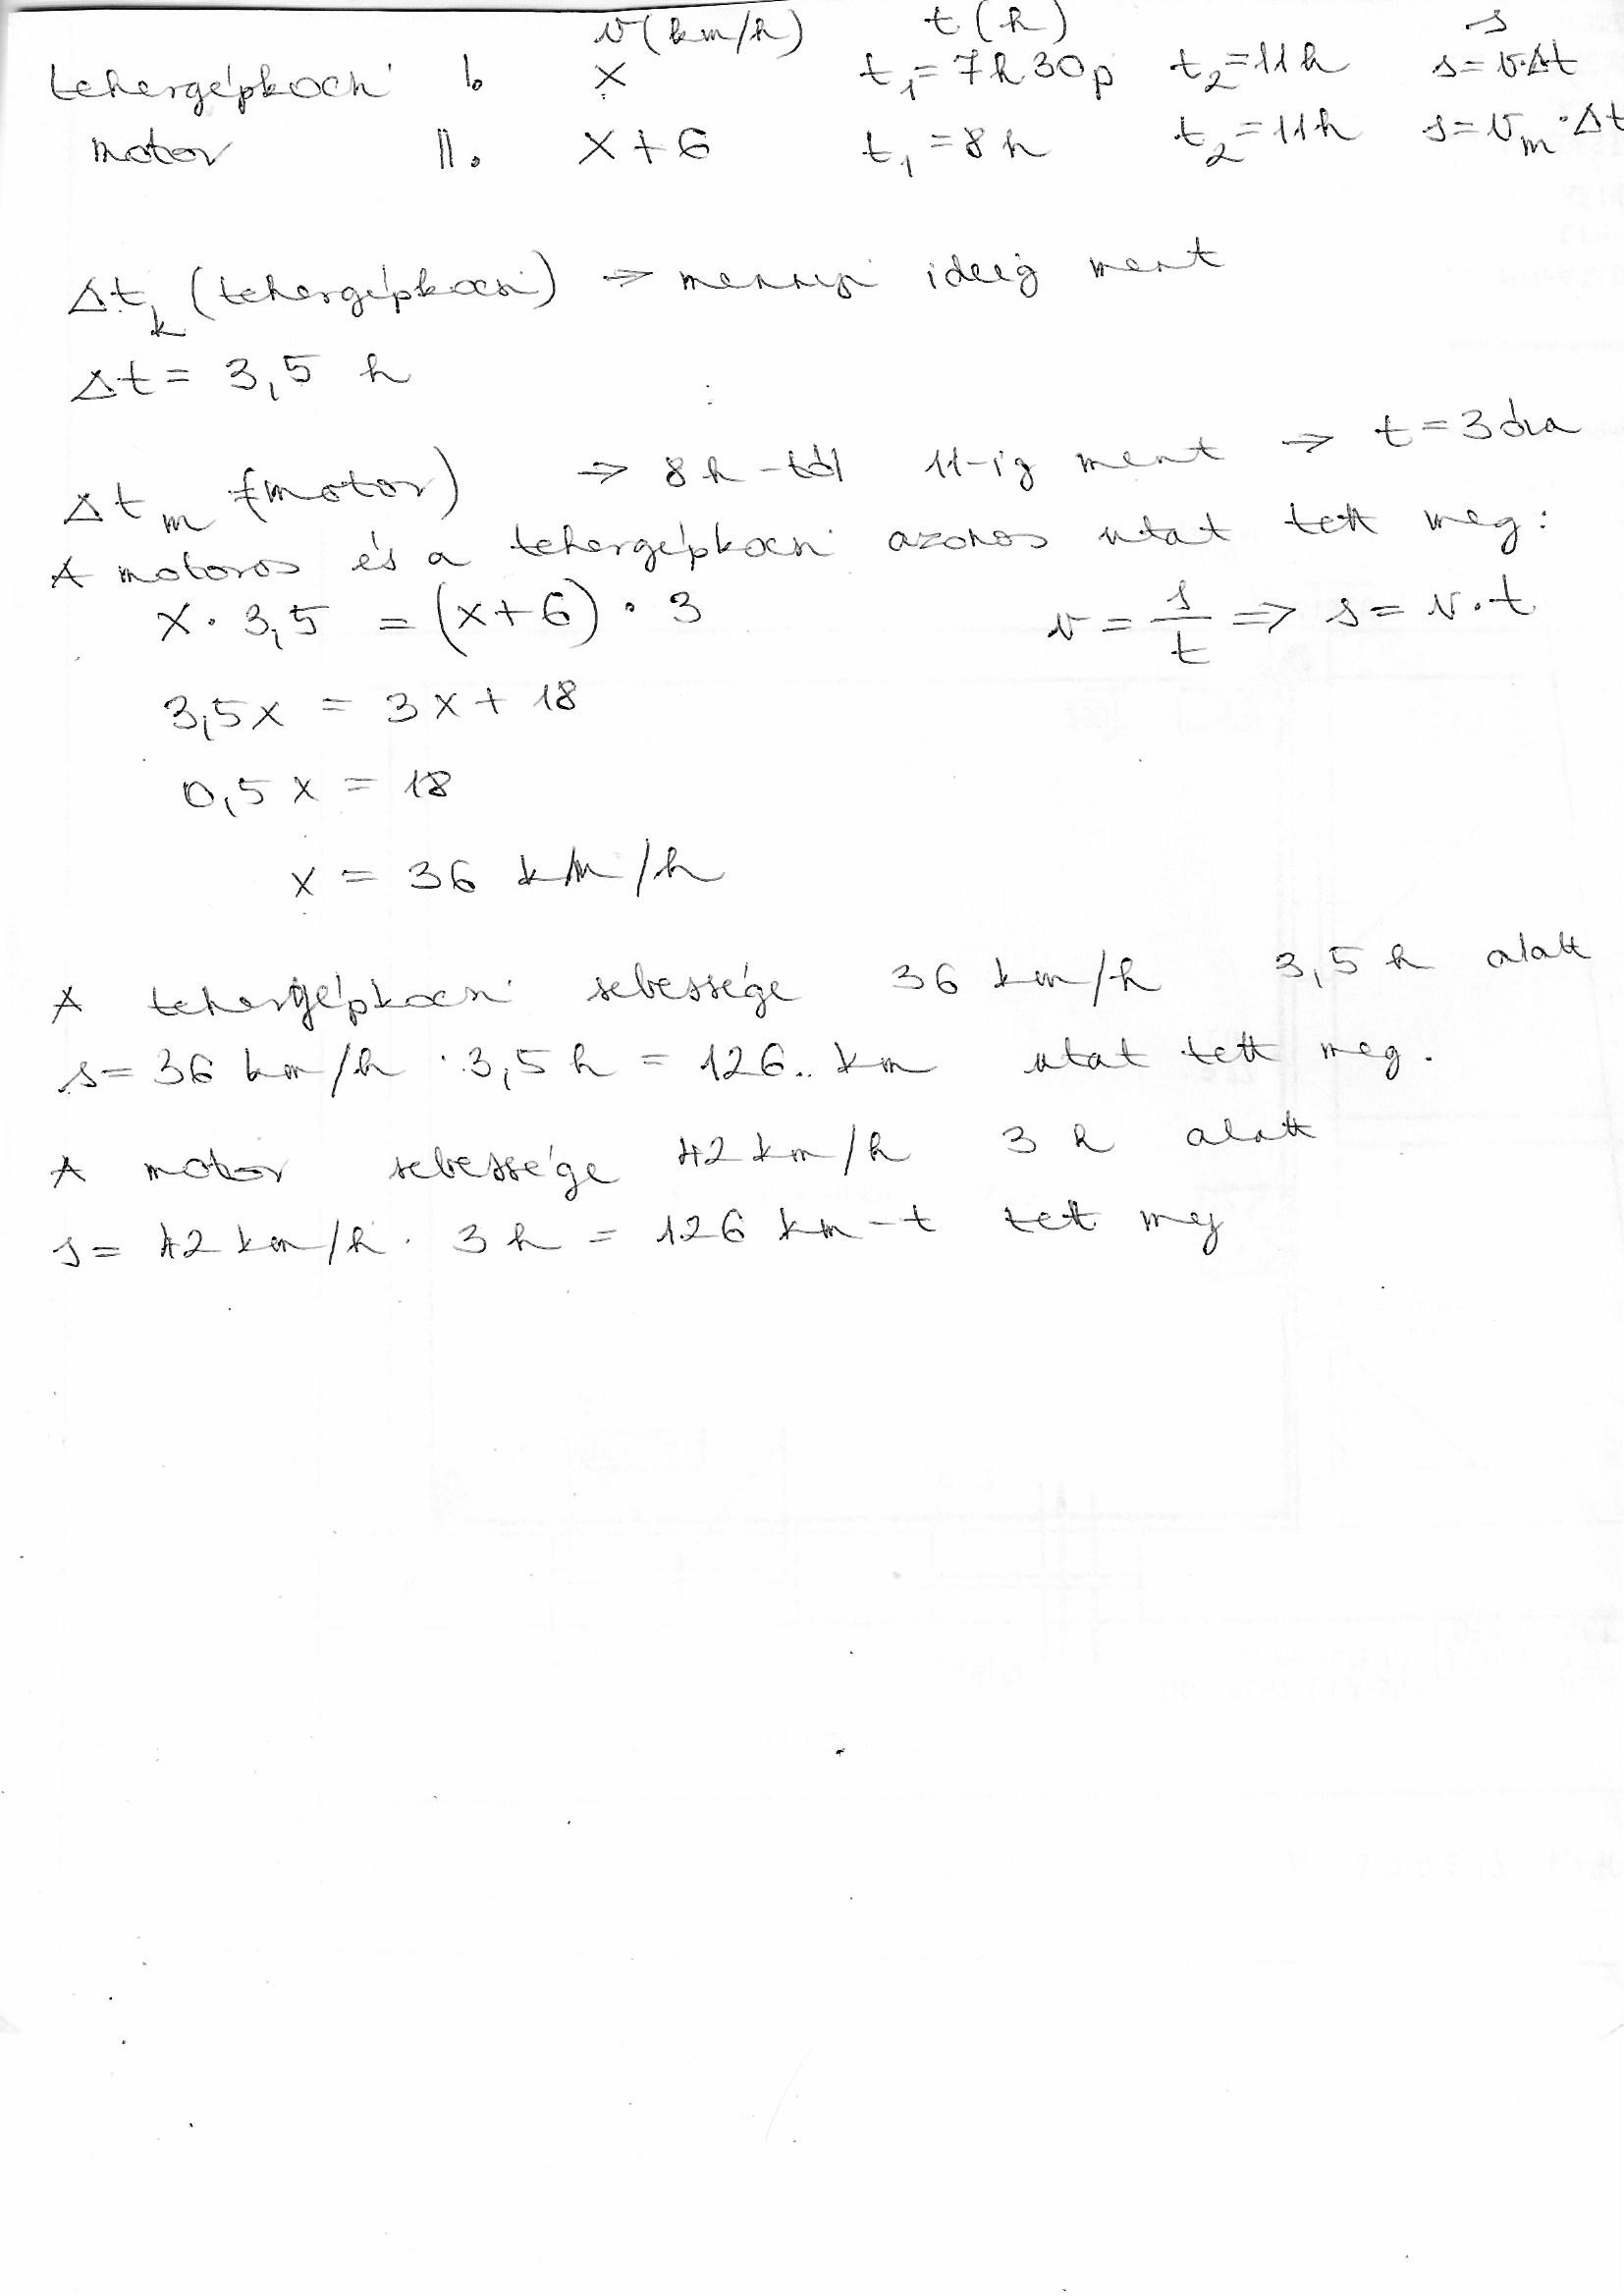 v(km/h) t(h) s
tehergépkocsi I. x t₁=7h30p t₂=11h s=v·Δt
motor II. x+6 t₁=8h t₂=11h s=vₘ·Δt
Δtₖ (tehergépkocsi) ⇒ mennyi ideig ment
Δt= 3,5 h
Δtₘ (motor) ⇒ 8h-tól 11-ig ment ⇒ t=3 óra
A motoros és a tehergépkocsi azonos utat tett meg:
x·3,5 = (x+6)·3 v = s/t ⇒ s=v·t
3,5x = 3x+18
0,5x = 18
x = 36 km/h
A tehergépkocsi sebessége 36 km/h 3,5 h alatt
s=36 km/h · 3,5h = 126.. km utat tett meg.
A motor sebessége 42 km/h 3 h alatt
s= 42 km/h · 3h = 126 km-t tett meg